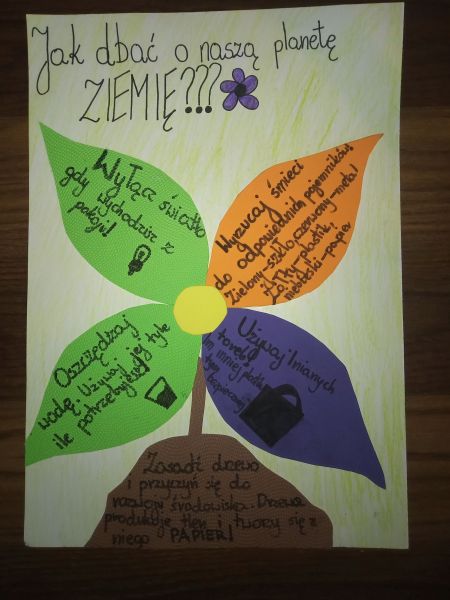 Jak dbać o naszą planetę
ZIEMIĘ???
Wyłącz światło
gdy wychodzisz z
pokoju!
Wyrzucaj śmieci
do odpowiednich pojemników!
Zielony-szkło, czerwony-metal
Żółty-plastik,
niebieski-papier
Oszczędzaj
wodę. Używaj jej tyle
ile potrzebujesz!
Używaj lnianych
toreb!
Im mniej plastiku
tym bezpieczniej
Zasadź drzewo
i przyczyń się do
rozwoju środowiska. Drzewa
produkują tlen i tworzy się z
niego PAPIER!